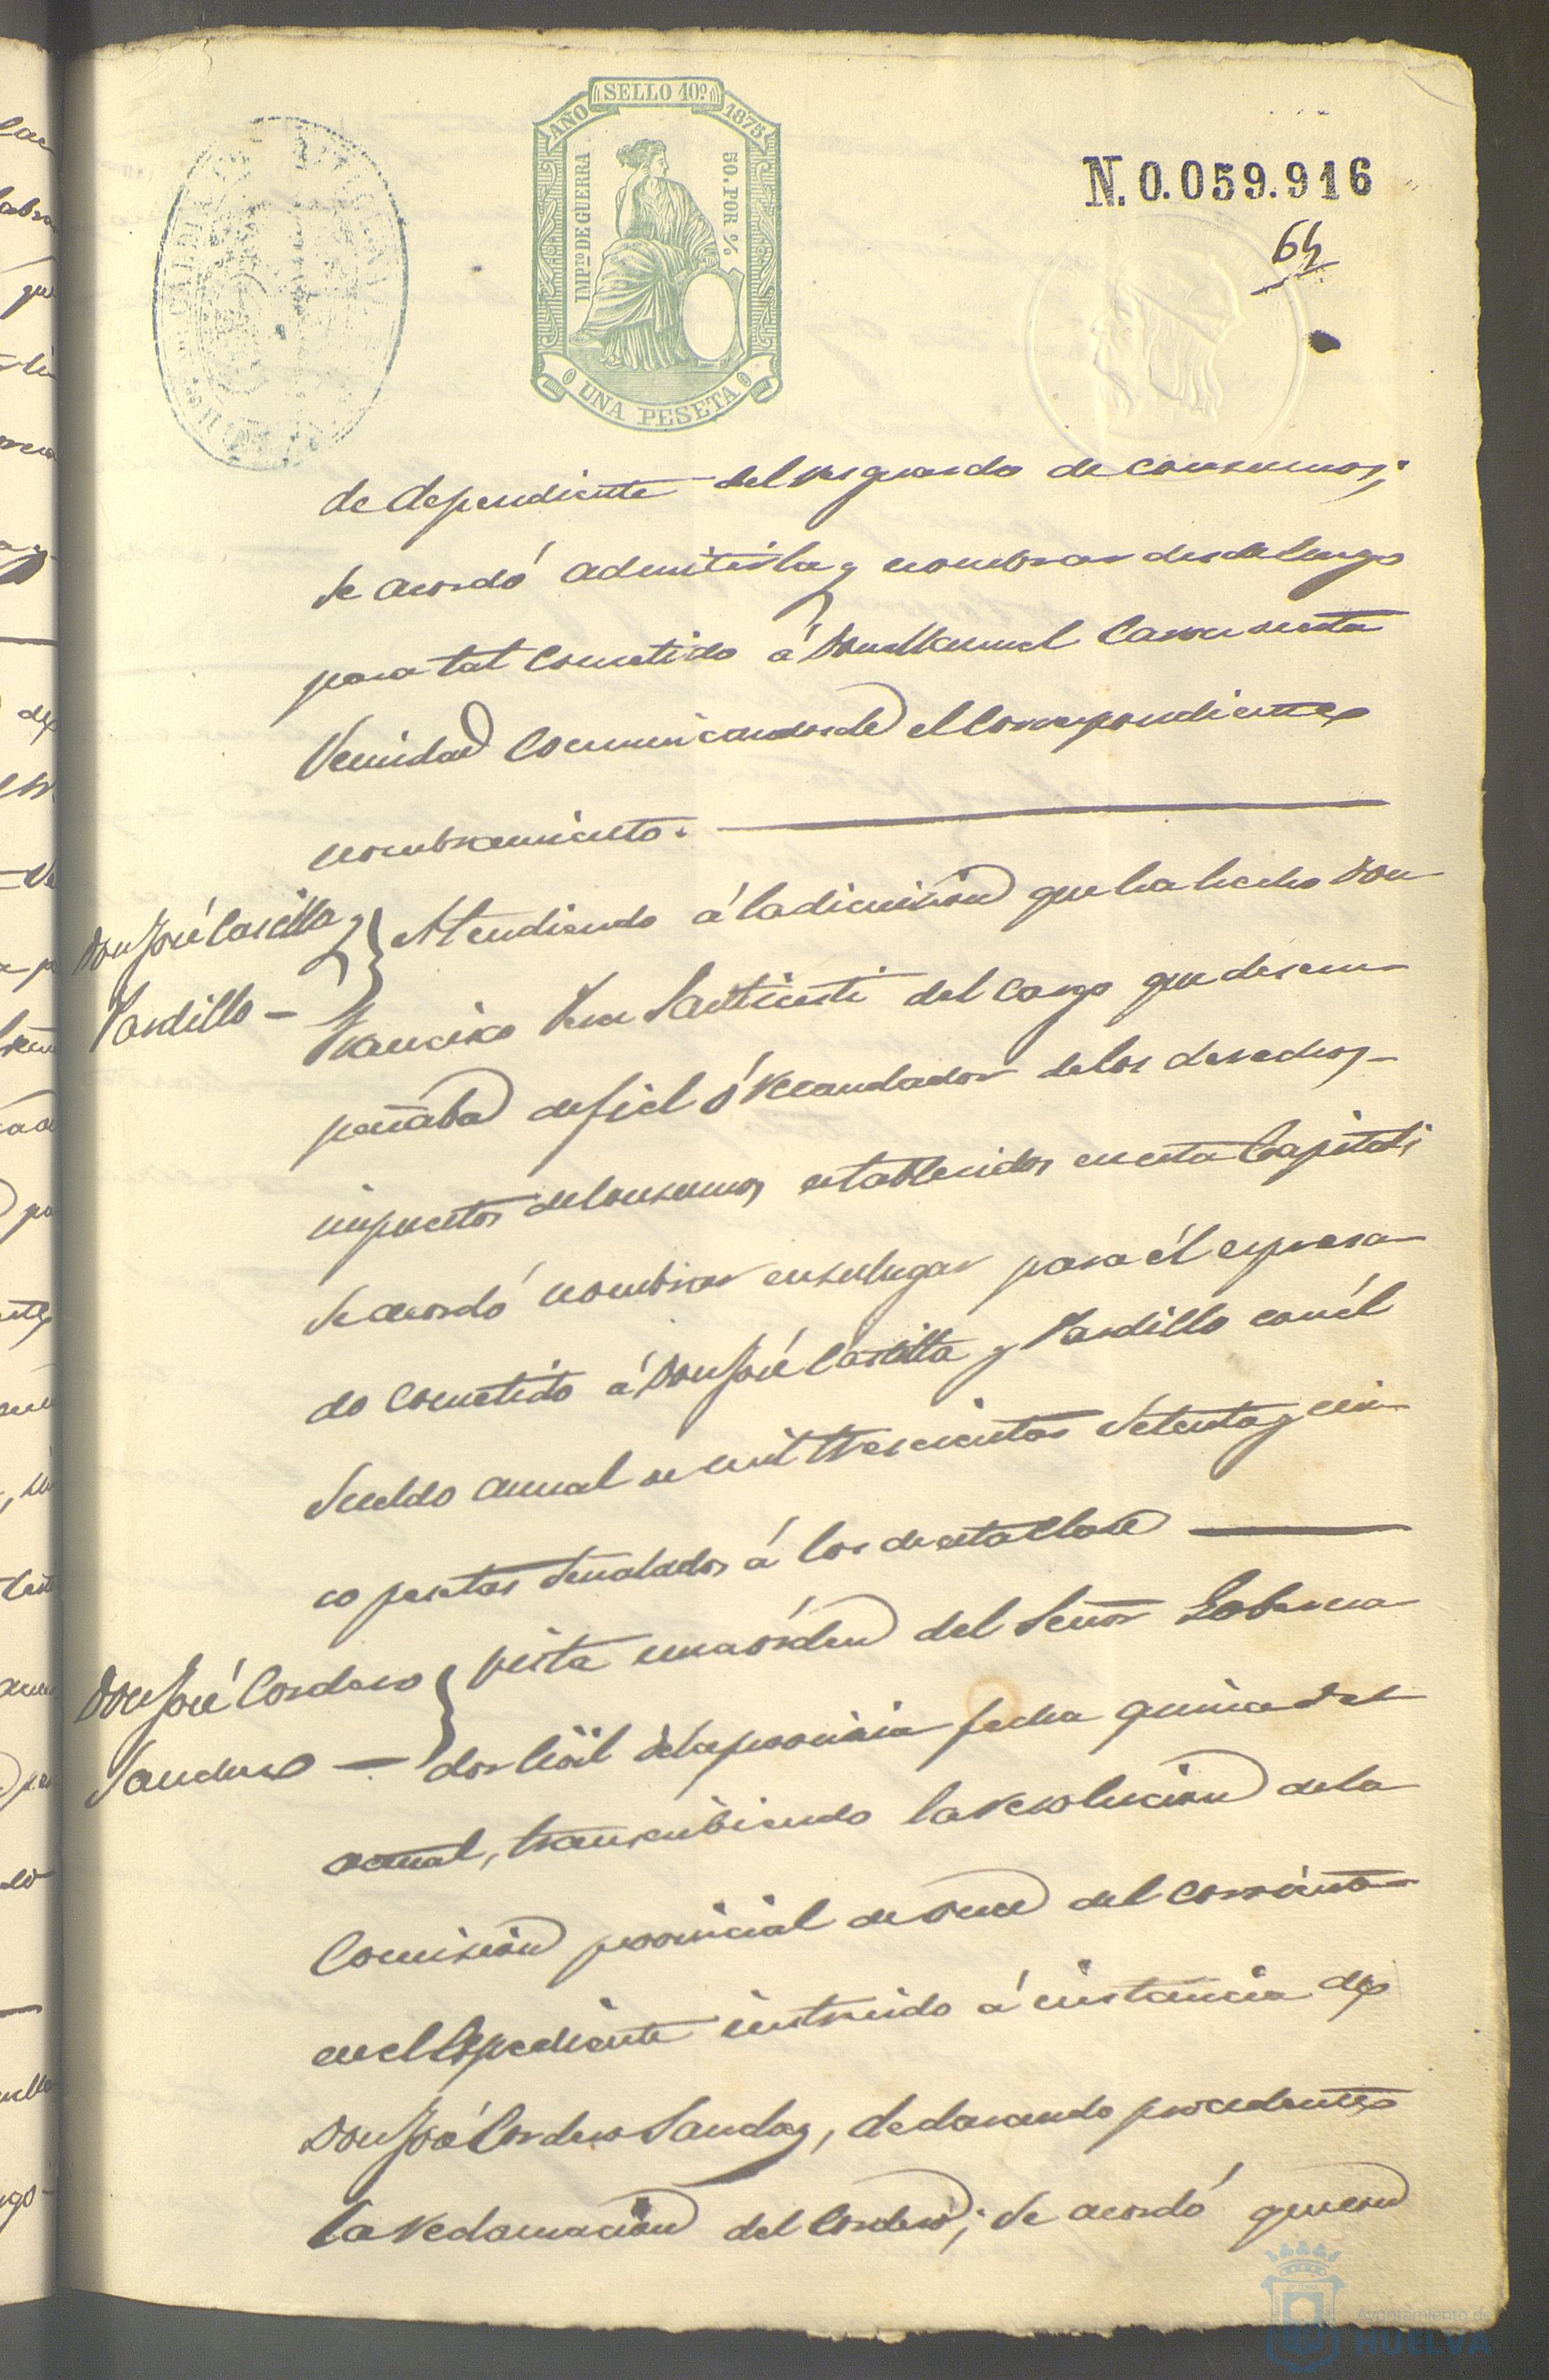 SELLO 10º
AÑO 1875
IMPTO DE GUERRA
50. POR %
UNA PESETA
N. 0.059.916
64
de dependiente del resguardo de consumos;
se acordó admitirla y nombrar desde luego
para tal cometido á Don Manuel
comunicandosele el correspondiente
nombramiento.
Don José Casilla y
Pardillo
Atendiendo á la dimision que ha hecho Don
Francisco del cargo que desem-
peñaba de fiel ó recaudador de los derechos
impuestos de consumos establecidos en esta Capital;
se acordó nombrar en su lugar para él espresa-
do cometido á Don José Casilla y Pardillo con él
sueldo anual de mil trescientas setenta y cin-
co pesetas señalados á los de esta clase
Don José Cordero
Sanchez
Vista una órden del Señor Goberna-
dor Civil de la provincia fecha quince del
actual, transcribiendo la resolucion de la
Comision provincial de once del corriente
en el Espediente instruido á instancia de
Don José Cordero Sanchez, declarando procedente
la reclamacion del Cordero; se acordó que con
Ayuntamiento de
HUELVA